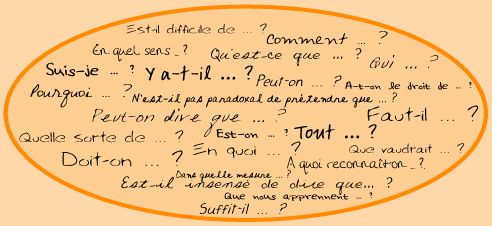 Est-il difficile de ... ?
Comment ... ?
En quel sens ... ?
Qu'est-ce que ... ?
Qui ... ?
Suis-je ... ?
Y a-t-il ... ?
Peut-on ... ?
A-t-on le droit de ... ?
Pourquoi ... ?
N'est-il pas paradoxal de prétendre que ... ?
Peut-on dire que ... ?
Faut-il ... ?
Quelle sorte de ... ?
Est-on ... ?
Tout ... ?
Doit-on ... ?
En quoi ... ?
Que vaudrait ... ?
Dans quelle mesure ... ?
A quoi reconnaît-on ... ?
Est-il insensé de dire que... ?
Que nous apprennent ... ?
Suffit-il ... ?